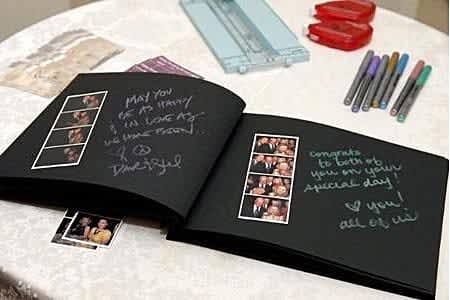 MAY YOU
BE AS HAPPY
& IN LOVE AS
WE HAVE BEEN...
congrats
to both of
you on your
special day!
♥ you!
all of us